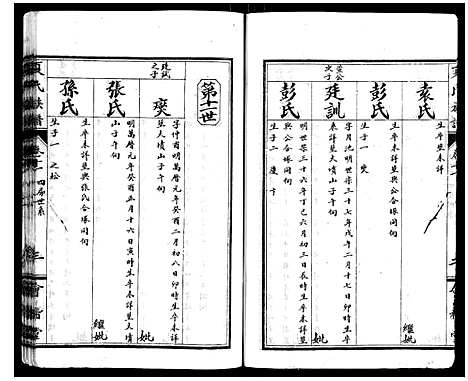 袁氏
生卒葬詳
繼妣
彭氏
生卒未詳葬與夫公合塚同向
生子一 奭
廷訓
字月池明世宗三十七年戊午二月十七日卯時生卒未詳葬
山子午向
妣
彭氏
明世宗三十六年丁巳六月十六日卯時生卒未詳葬
與公合塚同向
生子二 慶 卞
第十一世
廷試之子
奭
字仲甫明萬曆元年癸酉二月初八日卯時生卒未詳
葬大墳山子午向
妣
張氏
明萬曆元年癸酉五月十六日寅時生卒未詳葬大墳
山子午向
繼妣
孫氏
生卒未詳葬與張氏合塚同向
生子一 之松
氏族譜
四房世系
三
堂